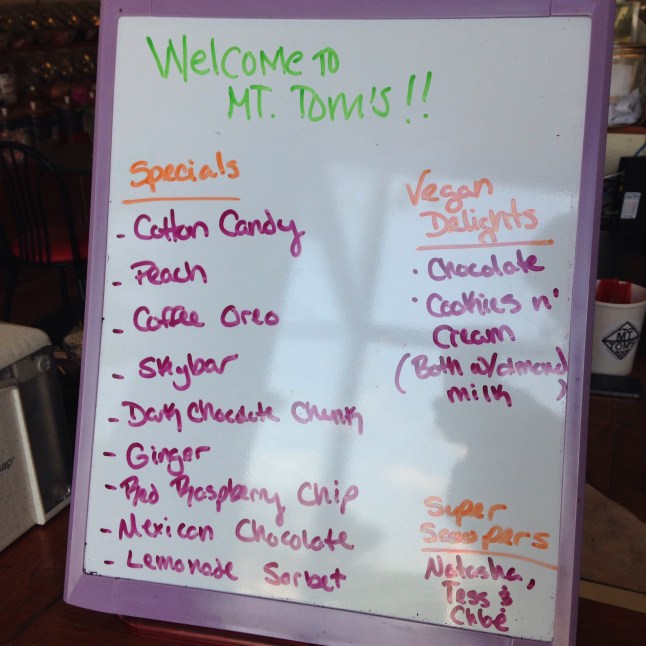 Welcome to
Mt. Tom's!!
Specials
- Cotton Candy
- Peach
- Coffee Oreo
- Skybar
- Dark Chocolate Chunk
- Ginger
- Red Raspberry Chip
- Mexican Chocolate
- Lemonade Sorbet
Vegan
Delights
· Chocolate
· Cookies n'
Cream
(Both w/almond
milk)
Super
Scoopers
Natasha,
Tess &
Chloe
MT
TOM'S